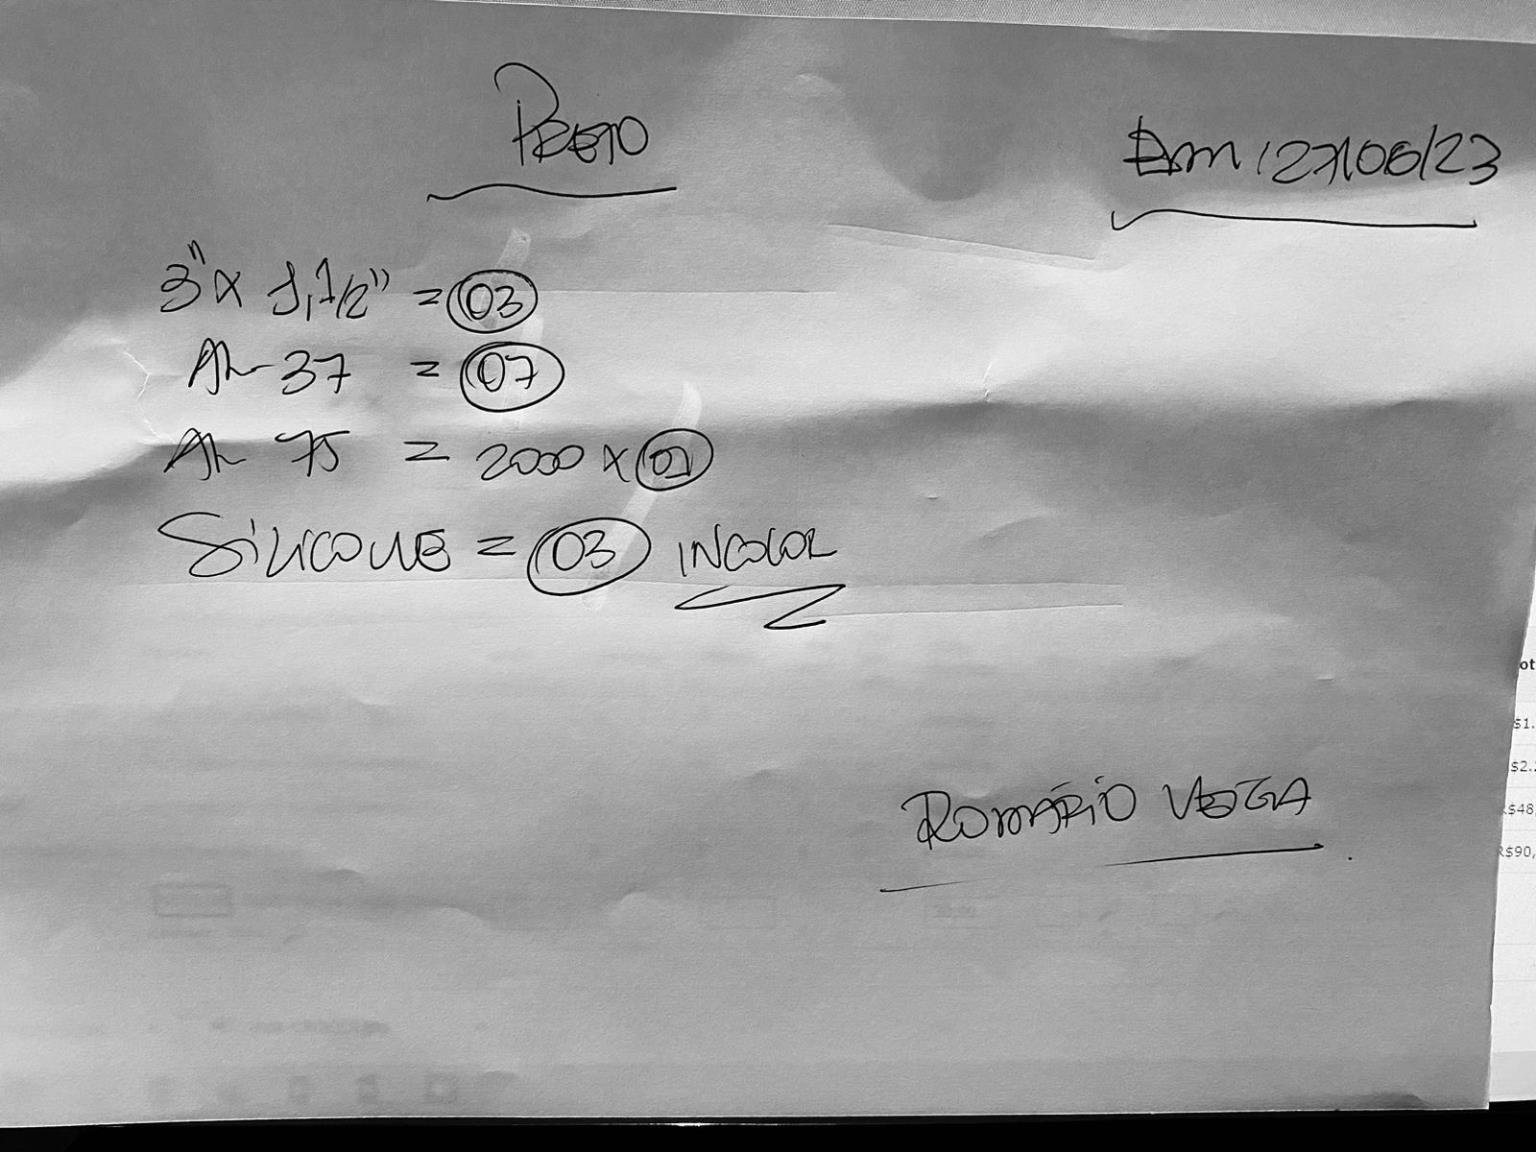 PRETO
Em, 27/06/23
3" x 1,1/2" = 03
AL 37 = 07
AL 75 = 2000 x 01
SiLICONE = 03 INCOLOR
ROMÁRIO VEIGA
$1.
$2.
$48,
R$90,